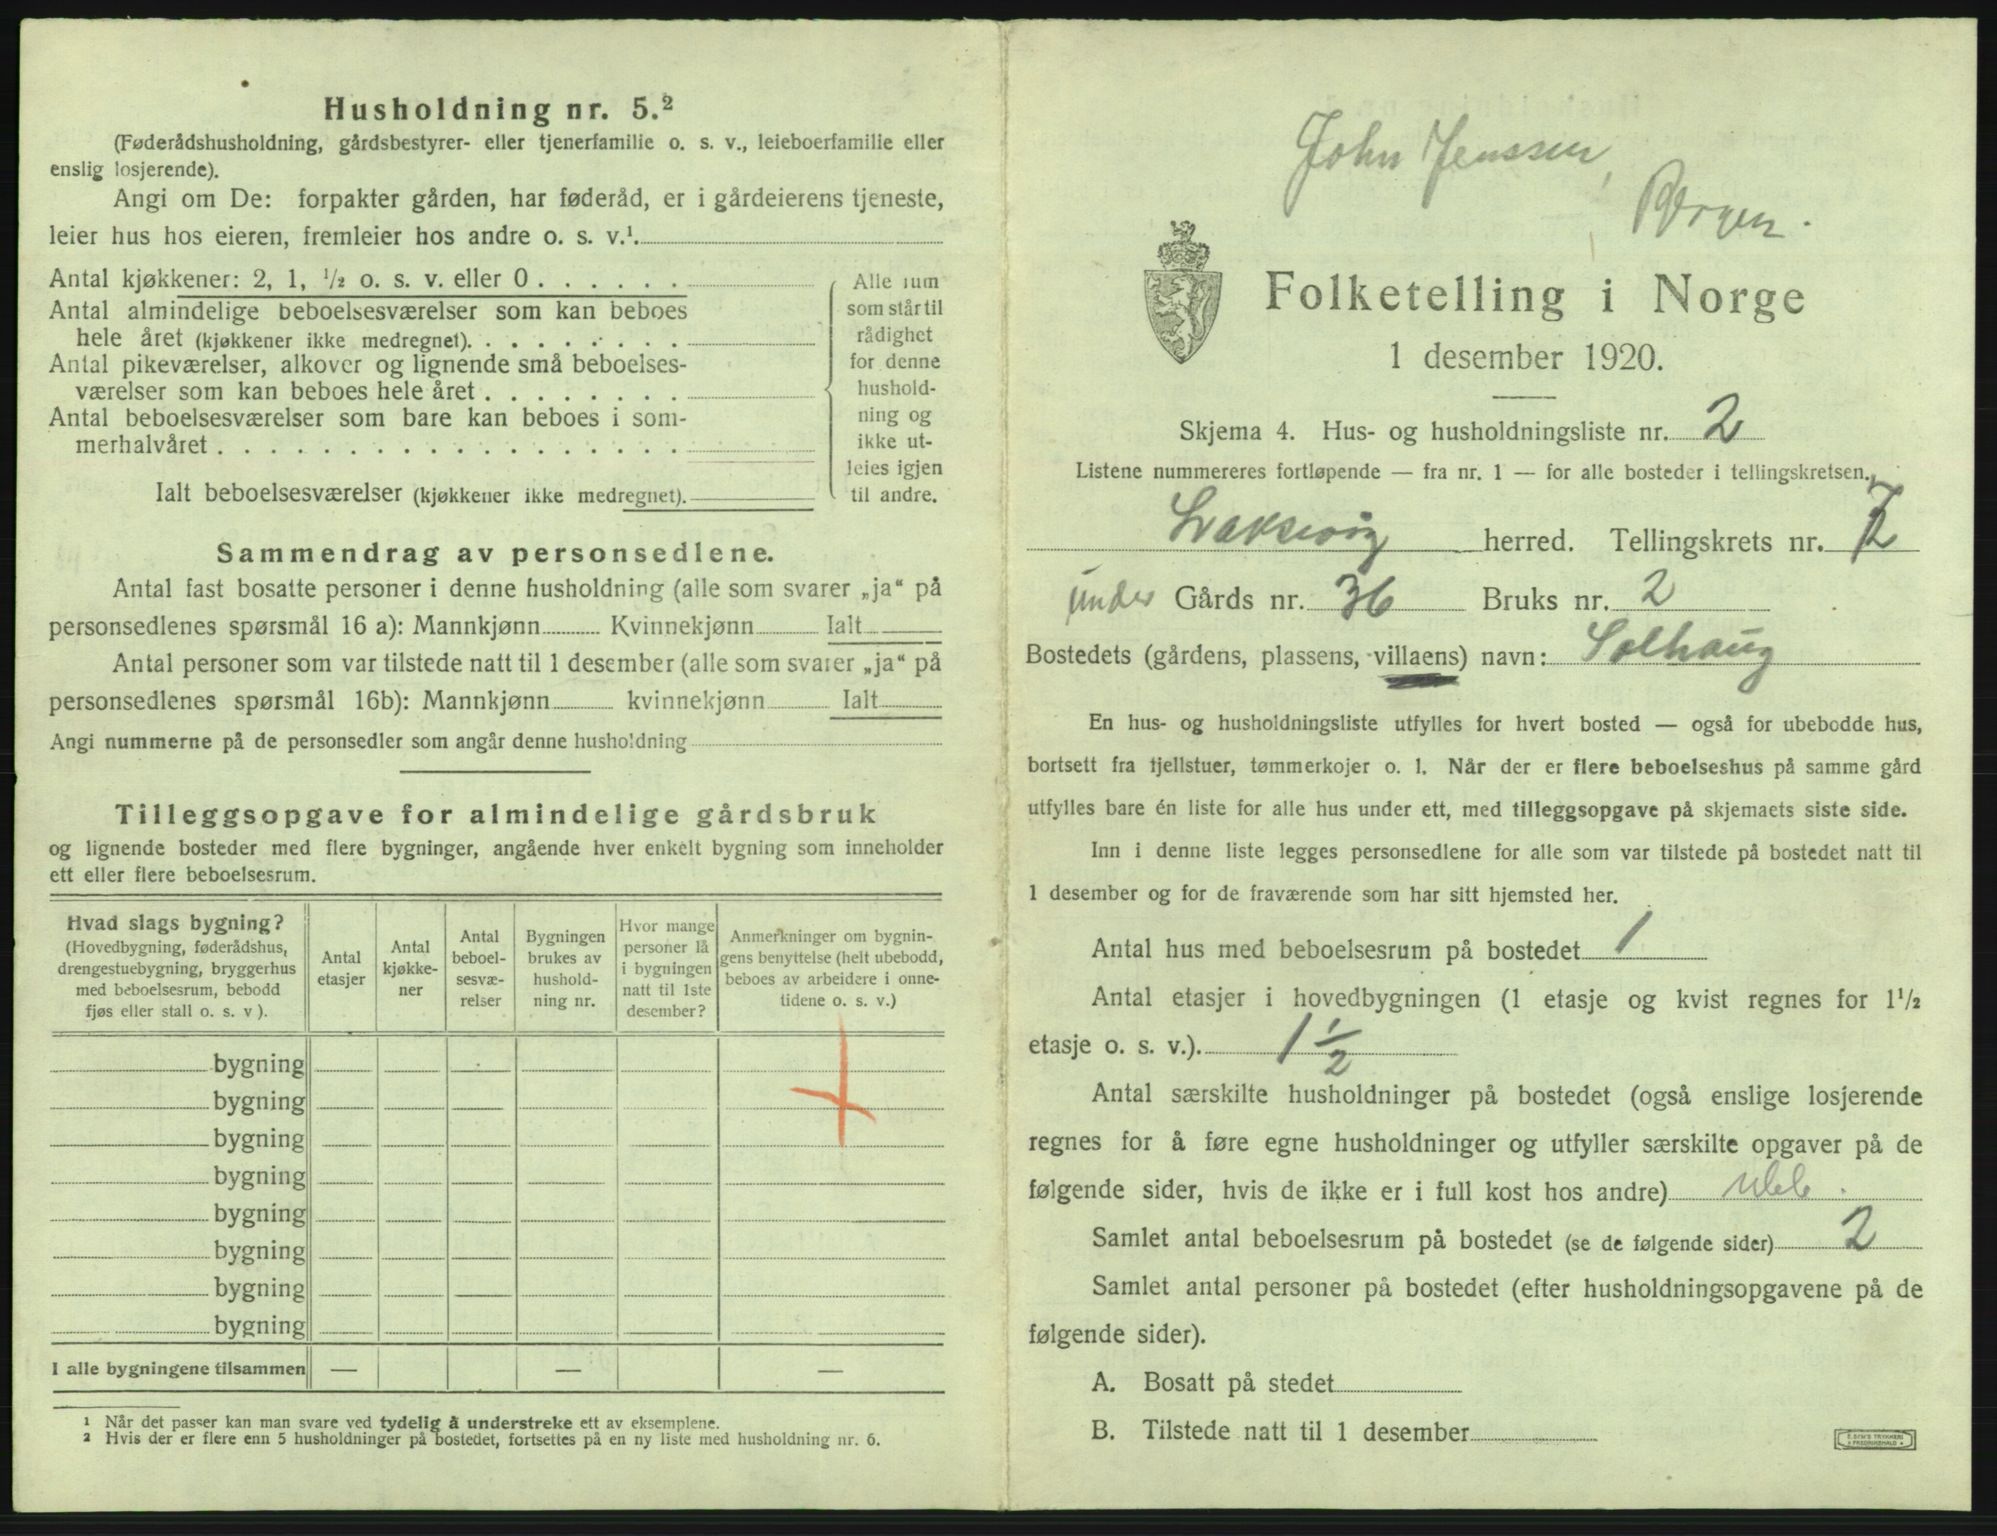 Husholdning nr. 5.²
(Føderådshusholdning, gårdsbestyrer- eller tjenerfamilie o. s. v., leieboerfamilie eller
enslig losjerende).
Angi om De: forpakter gården, har føderåd, er i gårdeierens tjeneste,
leier hus hos eieren, fremleier hos andre o. s. v.¹.
Antal kjøkkener: 2, 1, ¹/₂ o. s. v. eller 0 . . . . . .
Antal almindelige beboelsesværelser som kan beboes
hele året (kjøkkener ikke medregnet). . . . . . . . .
Antal pikeværelser, alkover og lignende små beboelses-
værelser som kan beboes hele året . . . . . . . .
Antal beboelsesværelser som bare kan beboes i som-
merhalvåret . . . . . . . . . . . . . . . . . .
Alle rum
som står til
rådighet
for denne
hushold-
ning og
ikke ut-
leies igjen
til andre.
Ialt beboelsesværelser (kjøkkener ikke medregnet).
Sammendrag av personsedlene.
Antal fast bosatte personer i denne husholdning (alle som svarer „ja“ på
personsedlenes spørsmål 16 a): Mannkjønn Kvinnekjønn Ialt
Antal personer som var tilstede natt til 1 desember (alle som svarer „ja“ på
personsedlenes spørsmål 16b): Mannkjønn kvinnekjønn Ialt
Angi nummerne på de personsedler som angår denne husholdning
Tilleggsopgave for almindelige gårdsbruk
og lignende bosteder med flere bygninger, angående hver enkelt bygning som inneholder
ett eller flere beboelsesrum.
Hvad slags bygning?
(Hovedbygning, føderådshus,
drengestuebygning, bryggerhus
med beboelsesrum, bebodd
fjøs eller stall o. s. v ).
Antal
etasjer
Antal
kjøkke-
ner
Antal
beboel-
sesvæ-
relser
Bygningen
brukes av
hushold-
ning nr.
Hvor mange
personer lå
i bygningen
natt til 1ste
desember?
Anmerkninger om bygnin-
gens benyttelse (helt ubebodd,
beboes av arbeidere i onne-
tidene o. s. v.)
bygning
bygning
bygning
bygning
bygning
bygning
bygning
bygning
I alle bygningene tilsammen — — —
¹ Når det passer kan man svare ved tydelig å understreke ett av eksemplene.
² Hvis der er flere enn 5 husholdninger på bostedet, fortsettes på en ny liste med husholdning nr. 6.
John Jenssen,
Bergen.
Folketelling i Norge
1 desember 1920.
Skjema 4. Hus- og husholdningsliste nr. 2
Listene nummereres fortløpende — fra nr. 1 — for alle bosteder i tellingskretsen.
Laksevåg herred. Tellingskrets nr. 7
under Gårds nr. 36 Bruks nr. 2
Bostedets (gårdens, plassens, villaens) navn: Solhaug
En hus- og husholdningsliste utfylles for hvert bosted — også for ubebodde hus,
bortsett fra fjellstuer, tømmerkojer o. l. Når der er flere beboelseshus på samme gård
utfylles bare én liste for alle hus under ett, med tilleggsopgave på skjemaets siste side.
Inn i denne liste legges personsedlene for alle som var tilstede på bostedet natt til
1 desember og for de fraværende som har sitt hjemsted her.
Antal hus med beboelsesrum på bostedet 1
Antal etasjer i hovedbygningen (1 etasje og kvist regnes for 1¹/₂
etasje o. s. v.). 1 ½
Antal særskilte husholdninger på bostedet (også enslige losjerende
regnes for å føre egne husholdninger og utfyller særskilte opgaver på de
følgende sider, hvis de ikke er i full kost hos andre)
Samlet antal beboelsesrum på bostedet (se de følgende sider) 2
Samlet antal personer på bostedet (efter husholdningsopgavene på de
følgende sider).
A. Bosatt på stedet
B. Tilstede natt til 1 desember
E. SEM'S TRYKKERI
FREDRIKSHALD